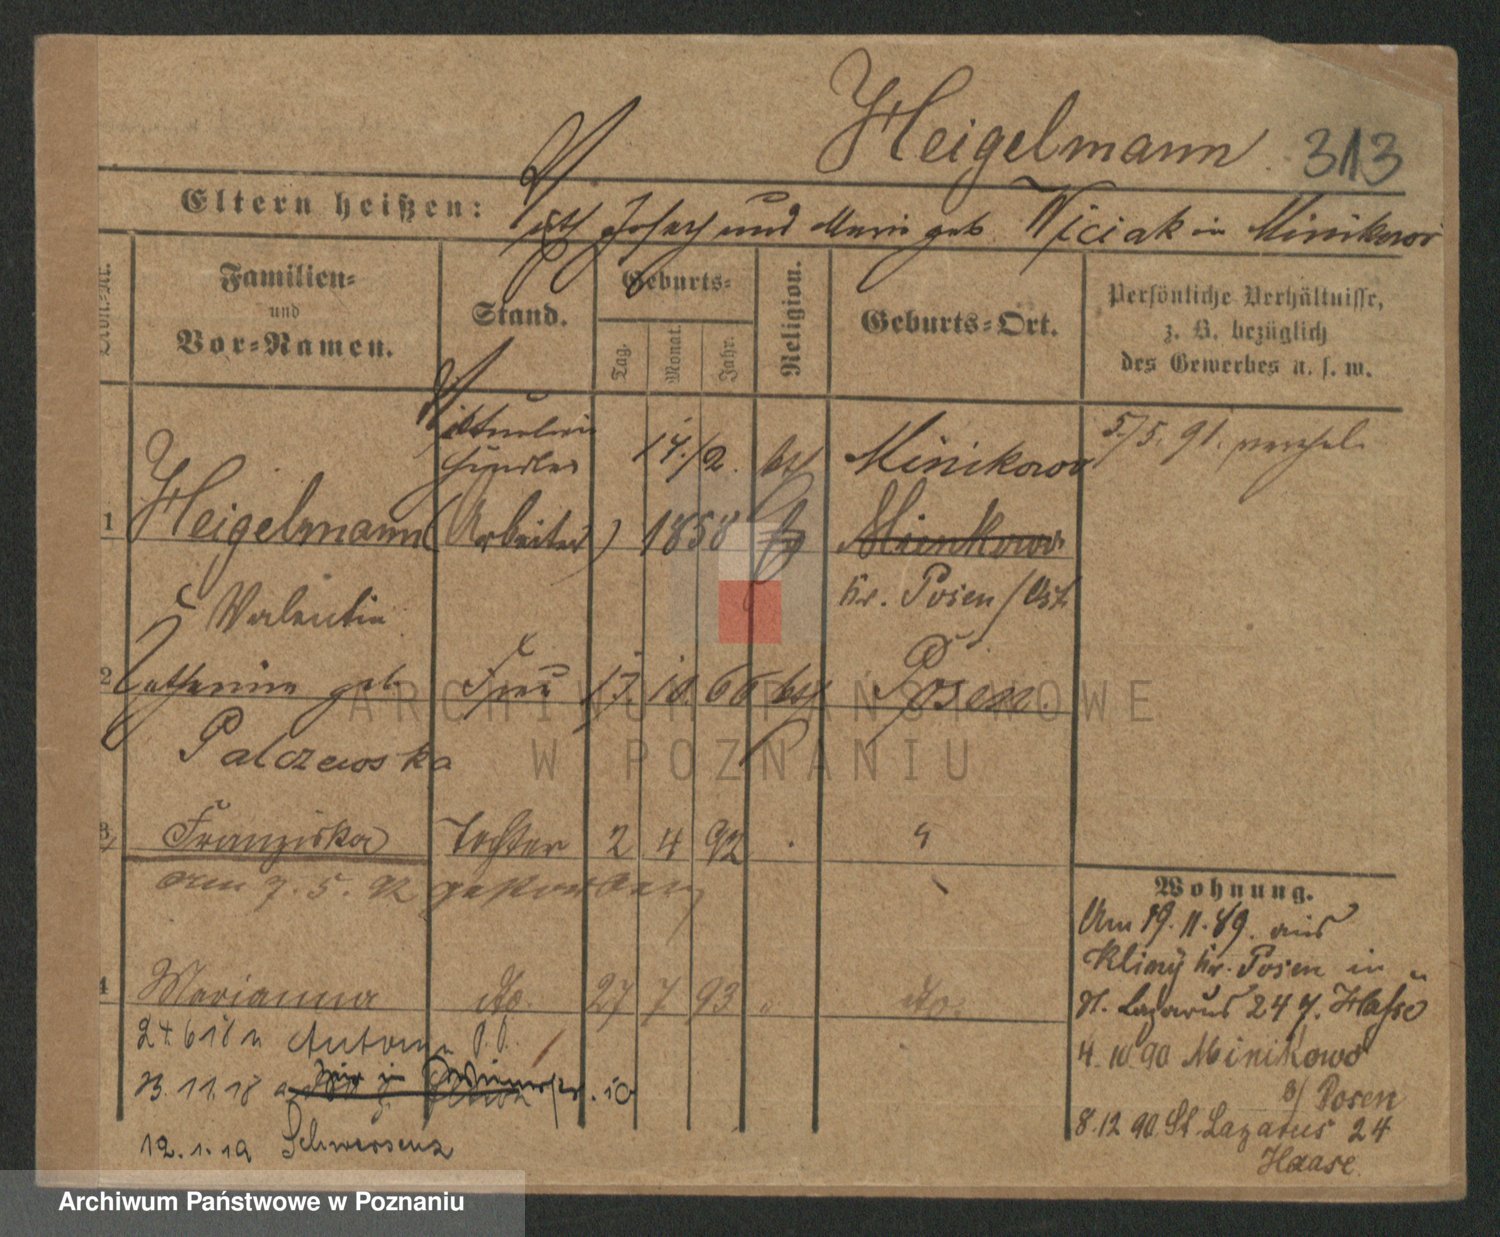 Heigelmann 313
Eltern heißen: Joseph und Marie geb. Wiciak in Minikowo
Familien=
und
Vor=Namen.
Stand.
Geburts=
Tag.
Monat.
Jahr.
Religion.
Geburts=Ort.
Persönliche Verhältnisse,
z. B. bezüglich
des Gewerbes u. s. w.
1 Heigelmann
Valentin
händler
(Arbeiter)
14./2.
1858
kth
Minikowo
Minikowo
Kr. Posen/Ost
5./5. 91.
2 Catharina geb.
Palczewska
Frau
10. 66
kth
Posen.
3 Franziska Tochter 2 4 92
am 7. 5. 92 gestorben
4 Marianna do. 27 7 93 do.
24 6 18 n
23. 11. 18
12. 1. 19 Schwersenz
Wohnung.
Am 19. 11. 89. aus
Kr. Posen in
St. Lazarus 24 Haße
4. 10 90 Minikowo
b/ Posen
8. 12 90. St. Lazarus 24
Haase.
ARCHIWUM PAŃSTWOWE
W POZNANIU
Archiwum Państwowe w Poznaniu